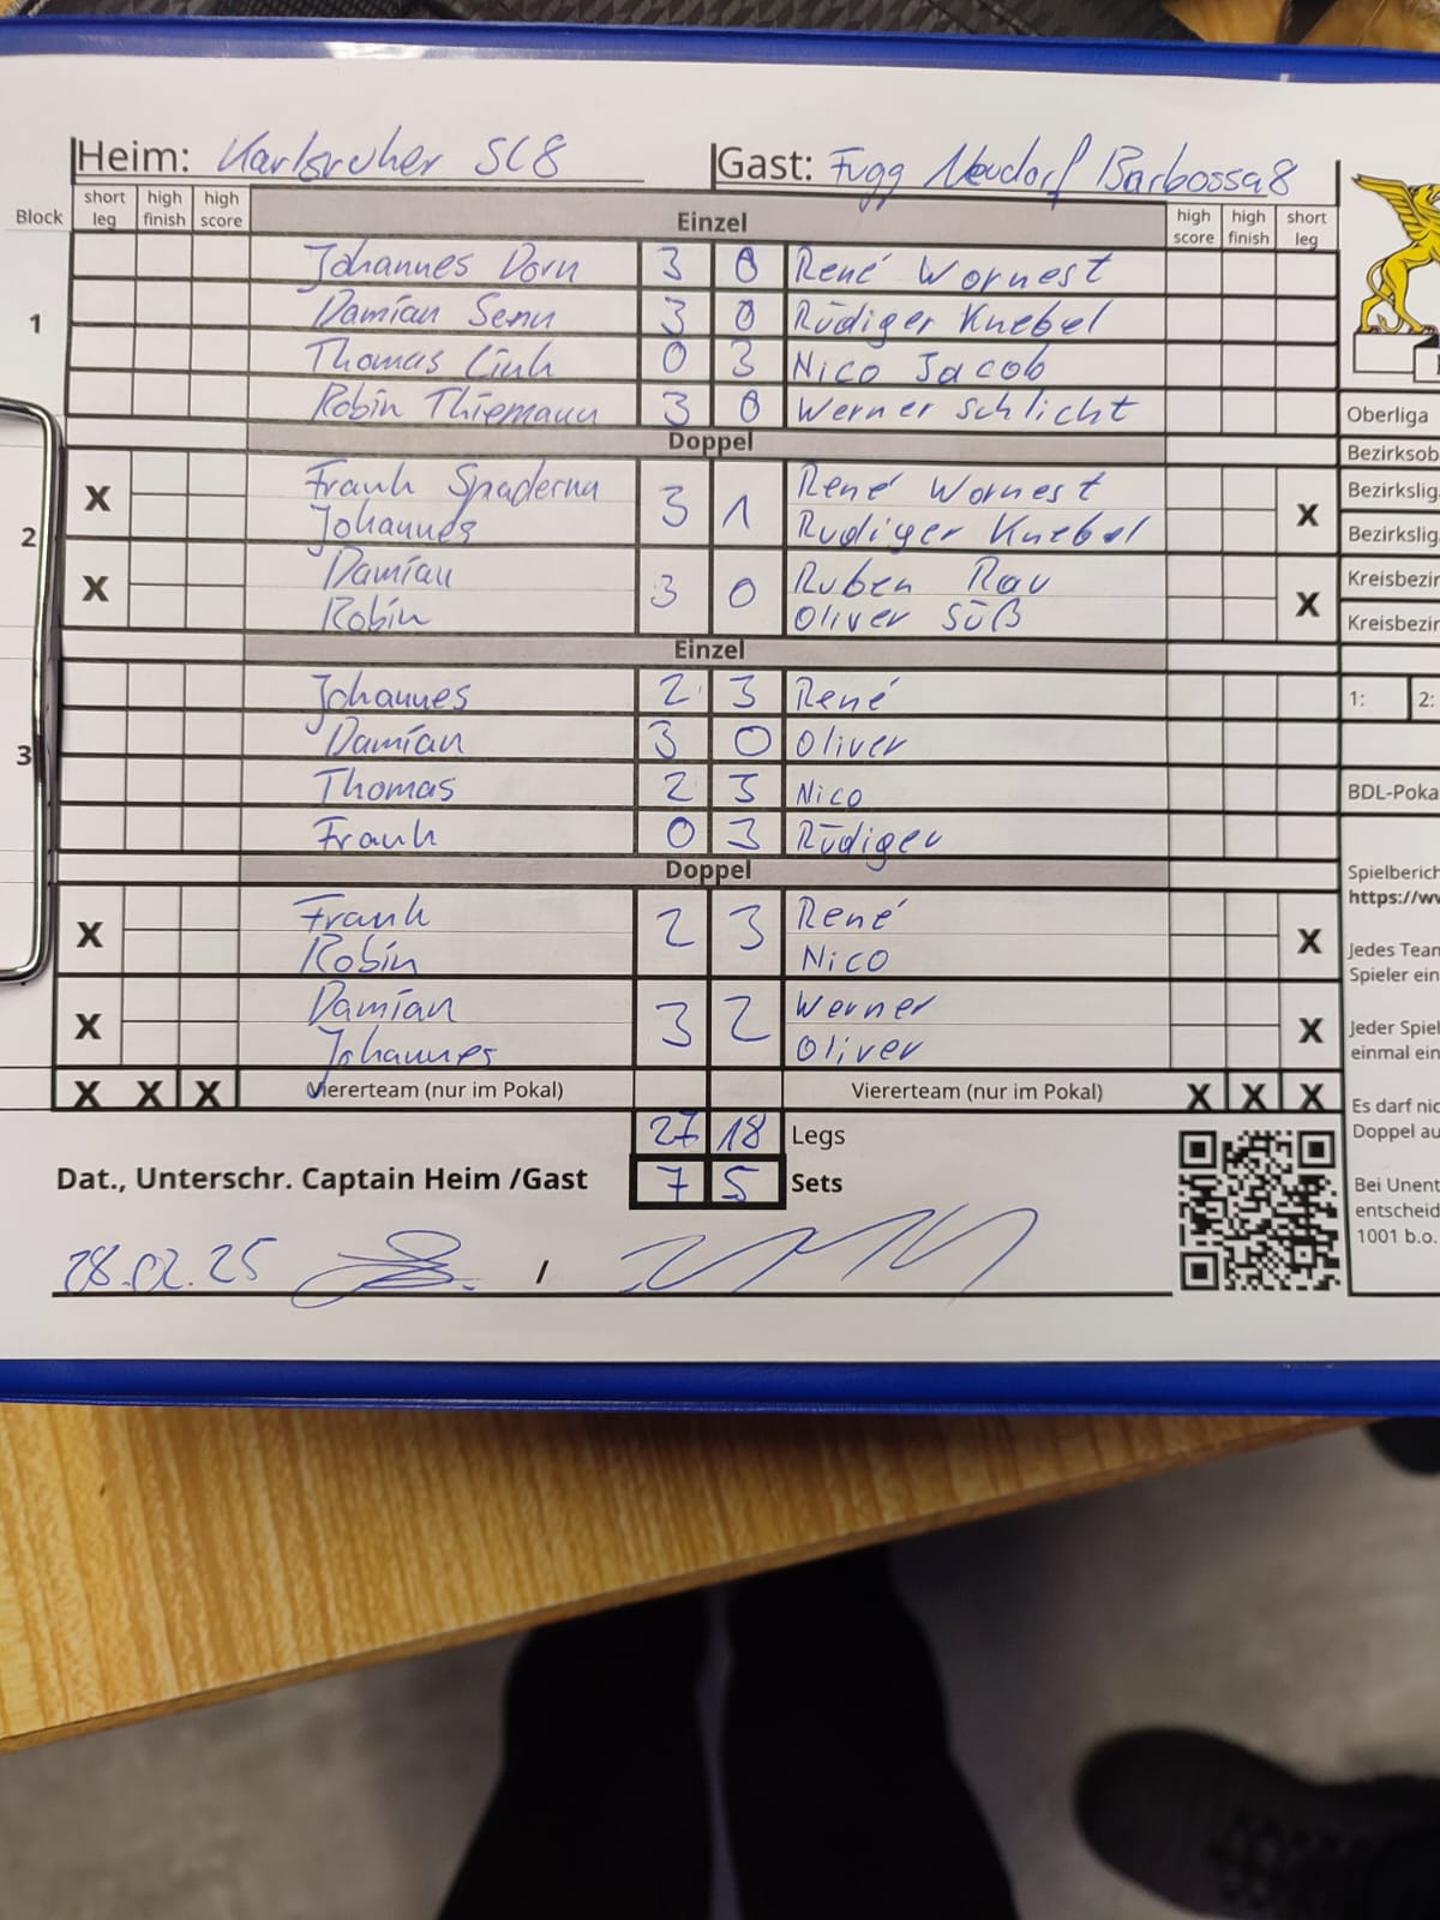 Heim: Karlsruher SC 8 Gast: Fugg Neudorf Barbossa 8
Block short leg high finish high score Einzel high score high finish short leg
Johannes Dorn 3 0 René Wornest
1 Damian Senn 3 0 Rüdiger Knebel
Thomas 0 3 Nico Jacob
Robin Thiemann 3 0 Werner Schlicht
Oberliga
Doppel
Bezirksob
X Frank Spaderna 3 1 René Wornest X
Johannes Rudiger Knebel
Bezirkslig
Bezirkslig
2
X Damian 3 0 Ruben Rau X
Robin Oliver Süß
Kreisbezir
Kreisbezir
Einzel
Johannes 2 3 René
1: 2:
3 Damian 3 0 Oliver
Thomas 2 3 Nico
BDL-Poka
Frank 0 3 Rüdiger
Doppel
Spielberich
https://ww
X Frank 2 3 René X
Robin Nico
Jedes Team
Spieler ein
X Damian 3 2 Werner X
Johannes Oliver
Jeder Spiel
einmal ein
X X X Viererteam (nur im Pokal) Viererteam (nur im Pokal) X X X
Es darf nic
Doppel au
27 18 Legs
Dat., Unterschr. Captain Heim /Gast 7 5 Sets
Bei Unent
entscheid
1001 b.o.
28.02.25 /